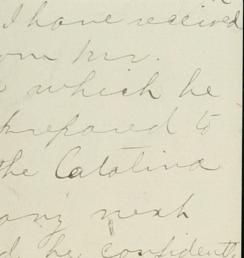 I have received
om Mr.
which he
prepared to
the Catalina
ony next
d he confidently